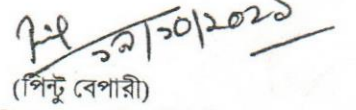 ২৭/১০/২০২১
(পিন্টু বেপারী)